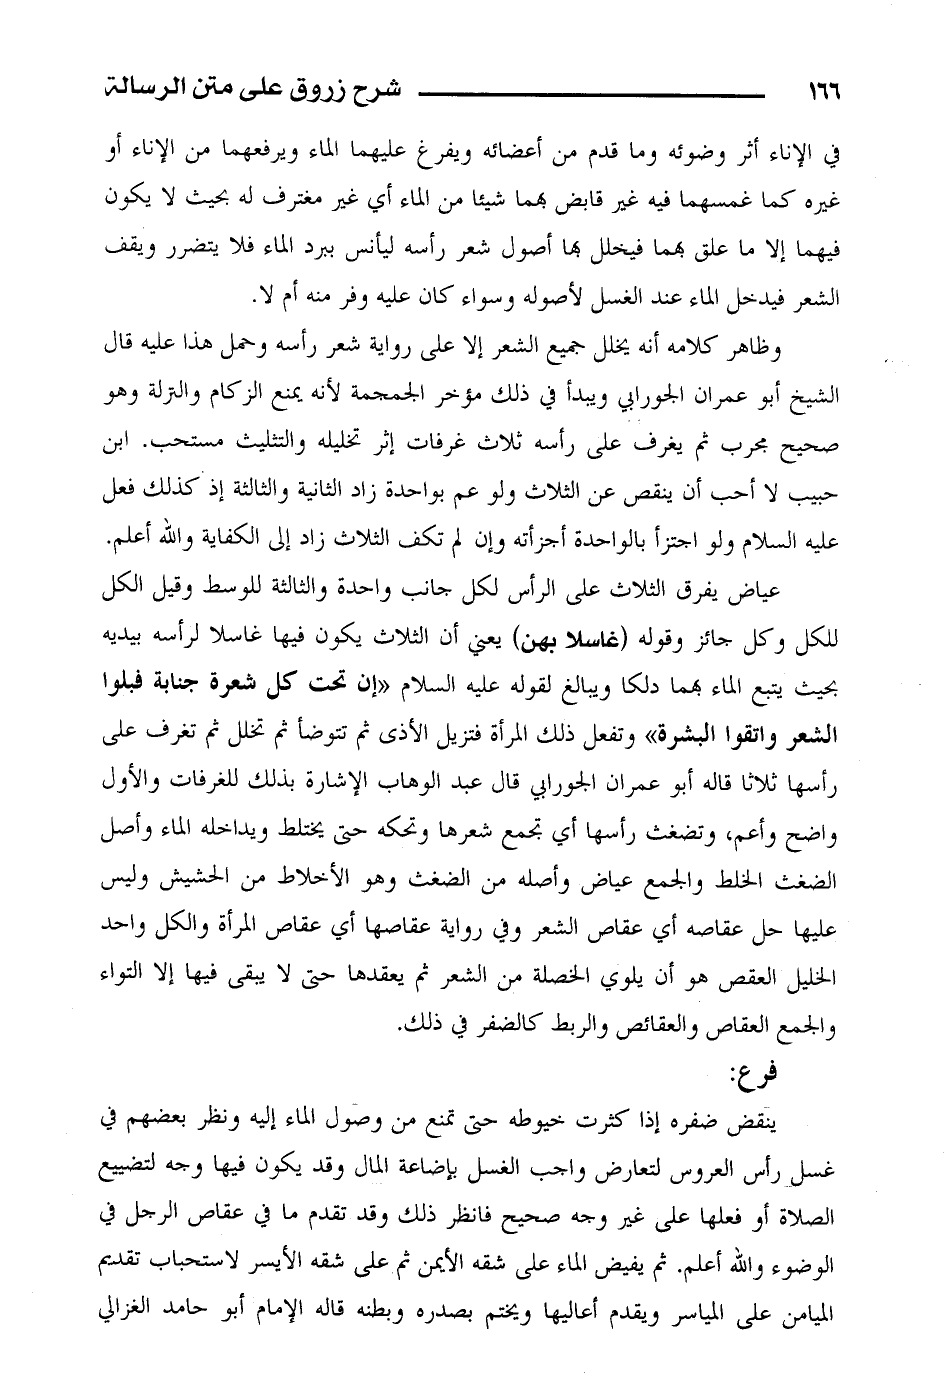 ١٦٦ شرح زروق على متن الرسالة
في الإناء أثر وضوئه وما قدم من أعضائه ويفرغ عليهما الماء ويرفعهما من الإناء أو
غيره كما غمسهما فيه غير قابض بهما شيئا من الماء أي غير مغترف له بحيث لا يكون
فيهما إلا ما علق بهما فيخلل بها أصول شعر رأسه ليأنس ببرد الماء فلا يتضرر ويقف
الشعر فيدخل الماء عند الغسل لأصوله وسواء كان عليه وفر منه أم لا.
وظاهر كلامه أنه يخلل جميع الشعر إلا على رواية شعر رأسه وحمل هذا عليه قال
الشيخ أبو عمران الجورابي ويبدأ في ذلك مؤخر الجمجمة لأنه يمنع الزكام والنزلة وهو
صحيح مجرب ثم يغرف على رأسه ثلاث غرفات إثر تخليله والتثليث مستحب. ابن
حبيب لا أحب أن ينقص عن الثلاث ولو عم بواحدة زاد الثانية والثالثة إذ كذلك فعل
عليه السلام ولو اجتزأ بالواحدة أجزأته وإن لم تكف الثلاث زاد إلى الكفاية والله أعلم.
عياض يفرق الثلاث على الرأس لكل جانب واحدة والثالثة للوسط وقيل الكل
للكل وكل جائز وقوله (غاسلا بهن) يعني أن الثلاث يكون فيها غاسلا لرأسه بيديه
بحيث يتبع الماء بهما دلكا ويبالغ لقوله عليه السلام «إن تحت كل شعرة جنابة فبلوا
الشعر واتقوا البشرة» وتفعل ذلك المرأة فتزيل الأذى ثم تتوضأ ثم تخلل ثم تغرف على
رأسها ثلاثا قاله أبو عمران الجورابي قال عبد الوهاب الإشارة بذلك للغرفات والأول
واضح وأعم، وتضغث رأسها أي تجمع شعرها وتحكه حتى يختلط ويداخله الماء وأصل
الضغث الخلط والجمع عياض وأصله من الضغث وهو الأخلاط من الحشيش وليس
عليها حل عقاصه أي عقاص الشعر وفي رواية عقاصها أي عقاص المرأة والكل واحد
الخليل العقص هو أن يلوي الخصلة من الشعر ثم يعقدها حتى لا يبقى فيها إلا التواء
والجمع العقاص والعقائص والربط كالضفر في ذلك.
فرع:
ينقض ضفره إذا كثرت خيوطه حتى تمنع من وصول الماء إليه ونظر بعضهم في
غسل رأس العروس لتعارض واجب الغسل بإضاعة المال وقد يكون فيها وجه لتضييع
الصلاة أو فعلها على غير وجه صحيح فانظر ذلك وقد تقدم ما في عقاص الرجل في
الوضوء والله أعلم. ثم يفيض الماء على شقه الأيمن ثم على شقه الأيسر لاستحباب تقديم
الميامن على المياسر ويقدم أعاليها ويختم بصدره وبطنه قاله الإمام أبو حامد الغزالي